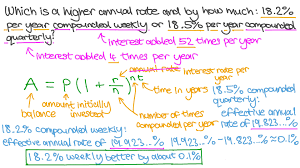 Which is a higher annual rate and by how much: 18.2%
per year compounded weekly or 18.5% per year compounded
quarterly?
interest added 52 times per year
interest added 4 times per year
annual rate
interest rate per
year
A = P(1 + r/n)^nt
time in years
balance
amount initially
invested
number of times
compounded per year
18.5% compounded
quarterly:
effective annual
rate of 19.823...%
18.2% compounded weekly:
effective annual rate of 19.923...%
19.923...% - 19.823...% ≈ 0.1%
18.2% weekly better by about 0.1%